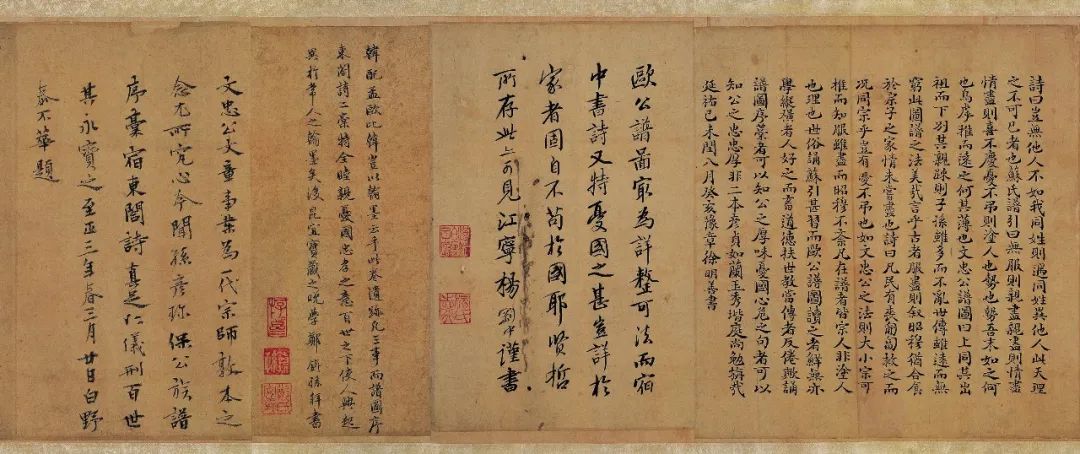 詩曰豈無他人不如我同姓則過同姓異他人此天理
之不可已者也蘇氏譜引曰無服則親盡親盡則情盡
情盡則喜不慶憂不吊則塗人也勢也勢吾末如之何
也烏序推而遠之何其薄也文忠公譜圖曰上同其出
祖而下別其親踈則子孫雖多而不亂世傳雖遠而無
窮此圖譜之法美哉言乎古者服盡則敘昭穆猶合食
於宗子之家情未嘗盡也詩曰凡民有喪匍匐救之而
况同宗乎豈有憂不吊也如文忠公之法則大小宗可
推而知服雖盡而昭穆不紊凡在譜者皆宗人非塗人
也理也世俗誦蘇引甚習而歐公譜圖讀之者鮮無亦
學縱橫者人好之而書道德扶世教當傳者反倦歟誦
譜圖序藁者可以知公之厚味憂國心危之句者可以
知公之忠忠厚非二本彥貞如蘭玉秀堦庭尚勉旃哉
延祐己未閏八月癸亥豫章徐明善書
歐公譜圖最為詳整可法而宿
中書詩又特憂國之甚豈詳於
家者固自不苟於國耶賢哲
所存此亦可見江寧楊剛中謹書
韓配孟歐比韓豈以翰墨云乎此卷遺跡凡三事而譜圖序
東閣詩二藁特全睦親憂國忠孝之意百世之下使人興起
異於華人之翰墨矣後昆宜寶藏之晚學鄭 拜書
文忠公文章事業為一代宗師敦本之
念尤所究心今聞孫彥珍保公族譜
序藁宿東閣詩真足以儀刑百世
其永寶之至正三年春三月廿日白野
泰不華題